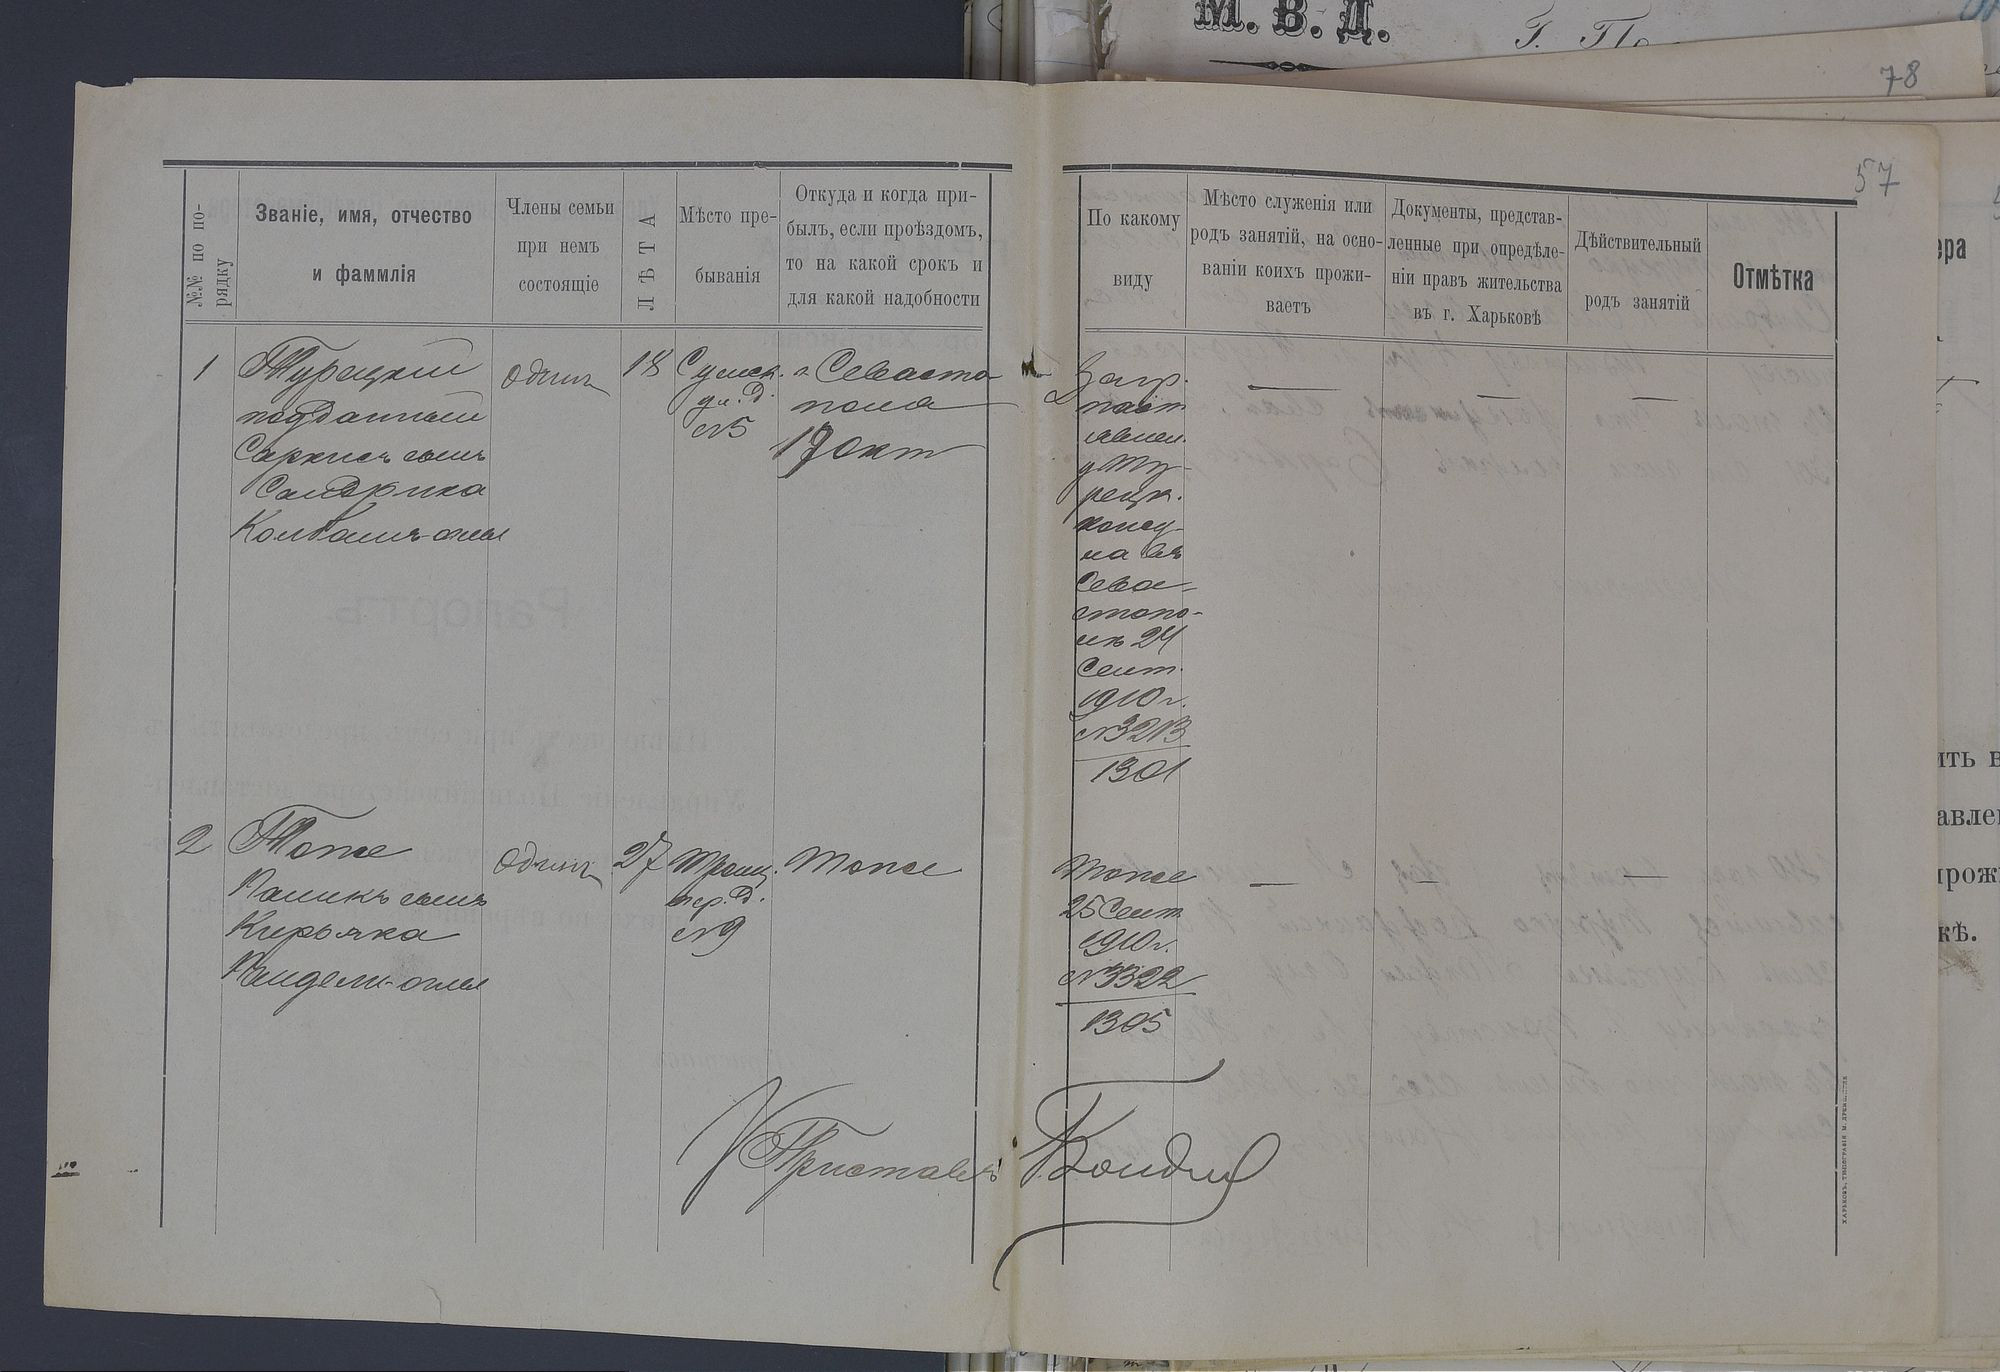 М. В. Д.
78
57
№№ по по-
рядку
Званіе, имя, отчество
и фаммлія
Члены семьи
при немъ
состоящіе
ЛѢТА
Мѣсто пре-
быванія
Откуда и когда при-
былъ, если проѣздомъ,
то на какой срокъ и
для какой надобности
По какому
виду
Мѣсто служенія или
родъ занятій, на осно-
ваніи коихъ прожи-
ваетъ
Документы, представ-
ленные при опредѣле-
ніи правъ жительства
въ г. Харьковѣ
Дѣйствительный
родъ занятій
Отмѣтка
1
Турецкій
подданный
Саркисъ сынъ
Кол
оглы
одинъ
18
Сумск.
ул. д.
№5
г. Севасто-
поля
17 Окт
Загр.
паст.
у Ту-
рецк.
консу-
ла въ
Сева-
стопо-
лѣ 24
Сент.
1910 г.
№ 3213
1301
2
Тоже
сынъ
Кирьяка
оглы
одинъ
27
Троиц.
пер. д.
№9
Тоже
Тоже
25 Сент.
1910 г.
№ 3322
1305
Приставъ
Рапортъ
ера
ить в
авле
прож
кѣ.